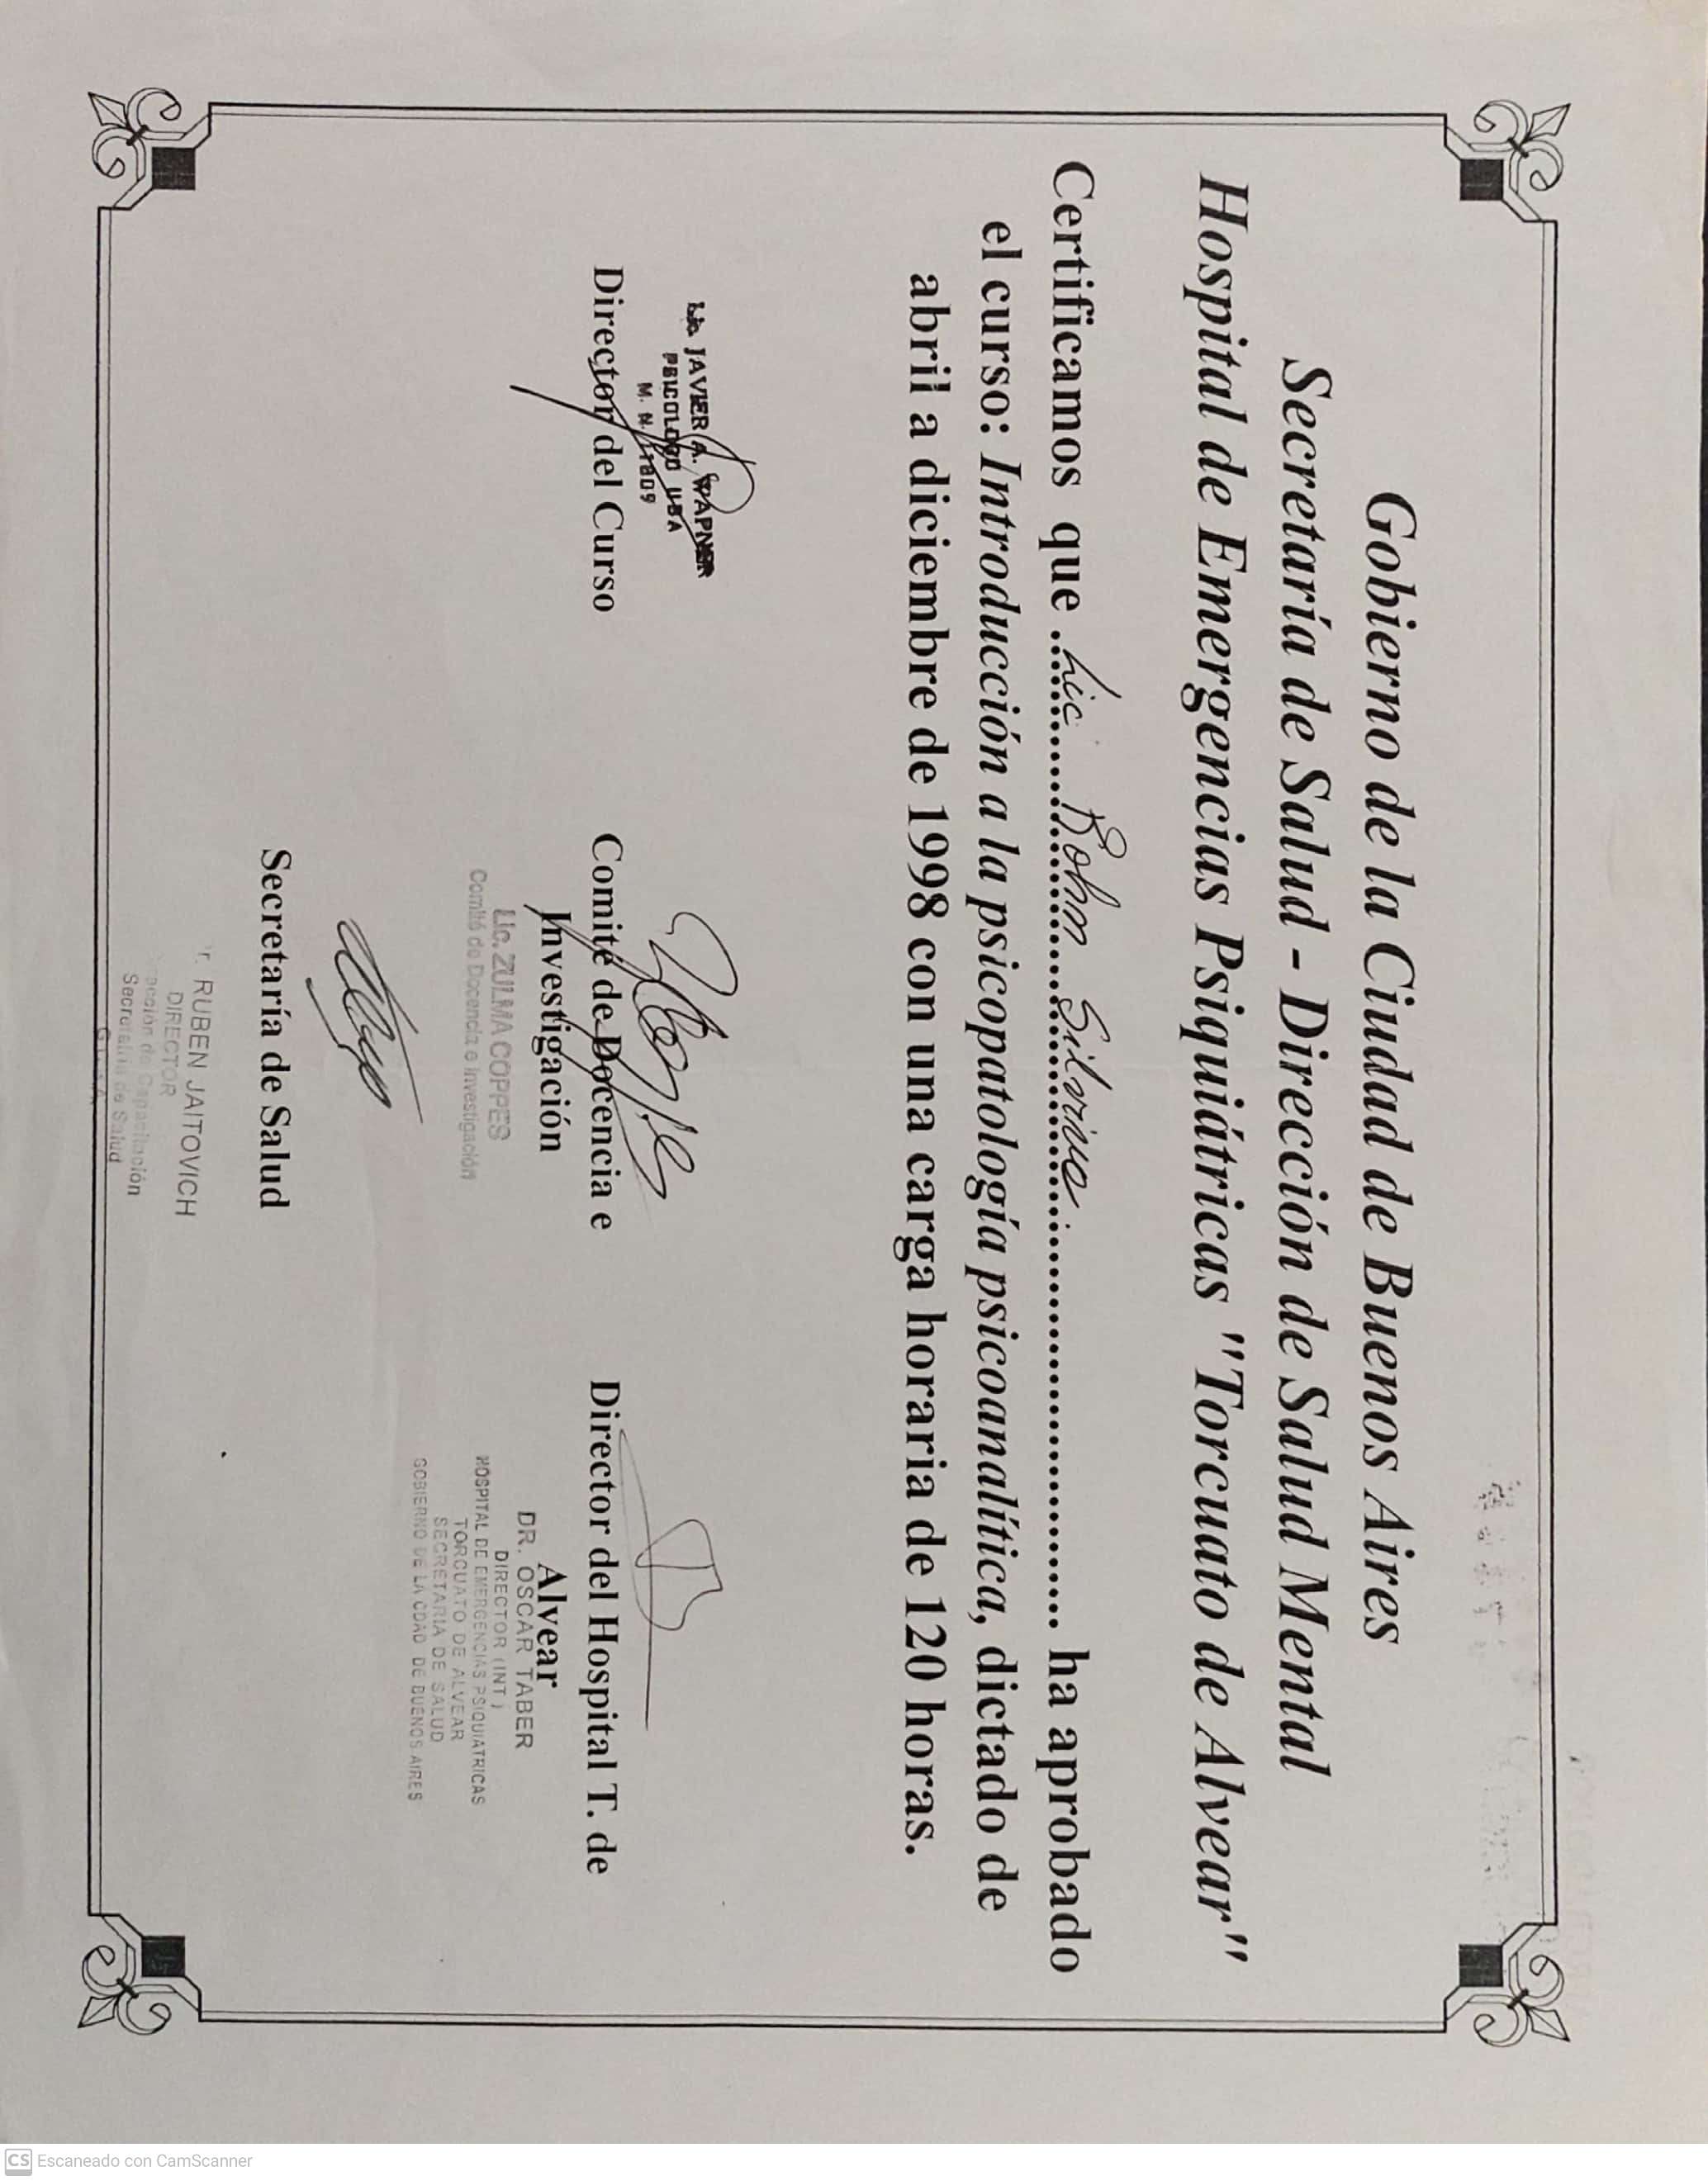 Gobierno de la Ciudad de Buenos Aires
Secretaría de Salud - Dirección de Salud Mental
Hospital de Emergencias Psiquiátricas "Torcuato de Alvear"
Certificamos que Lic Rohn Silvina ha aprobado
el curso: Introducción a la psicopatología psicoanalítica, dictado de
abril a diciembre de 1998 con una carga horaria de 120 horas.
Lic. JAVIER A. WAPNER
PSICOLOGO UBA
M. N. 11809
Director del Curso
Comité de Docencia e
Investigación
Lic. ZULMA COPPES
Comité de Docencia e Investigación
Director del Hospital T. de
Alvear
DR. OSCAR TABER
DIRECTOR (INT)
HOSPITAL DE EMERGENCIAS PSIQUIATRICAS
TORCUATO DE ALVEAR
SECRETARIA DE SALUD
GOBIERNO DE LA CDAD DE BUENOS AIRES
Secretaría de Salud
RUBEN JAITOVICH
DIRECTOR
de Capacitación
Secretaría de Salud
CS Escaneado con CamScanner